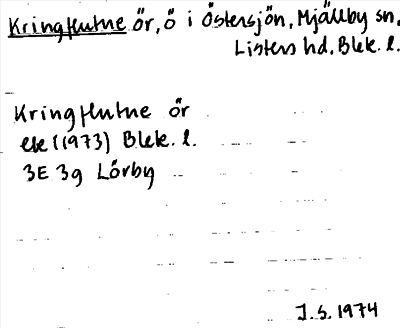 Kringflutne ör, ö i Östersjön, Mjällby sn,
Listers hd, Blek. l.
Kringflutne ör
ek (1973) Blek. l.
3E 3g Lörby
J.S. 1974